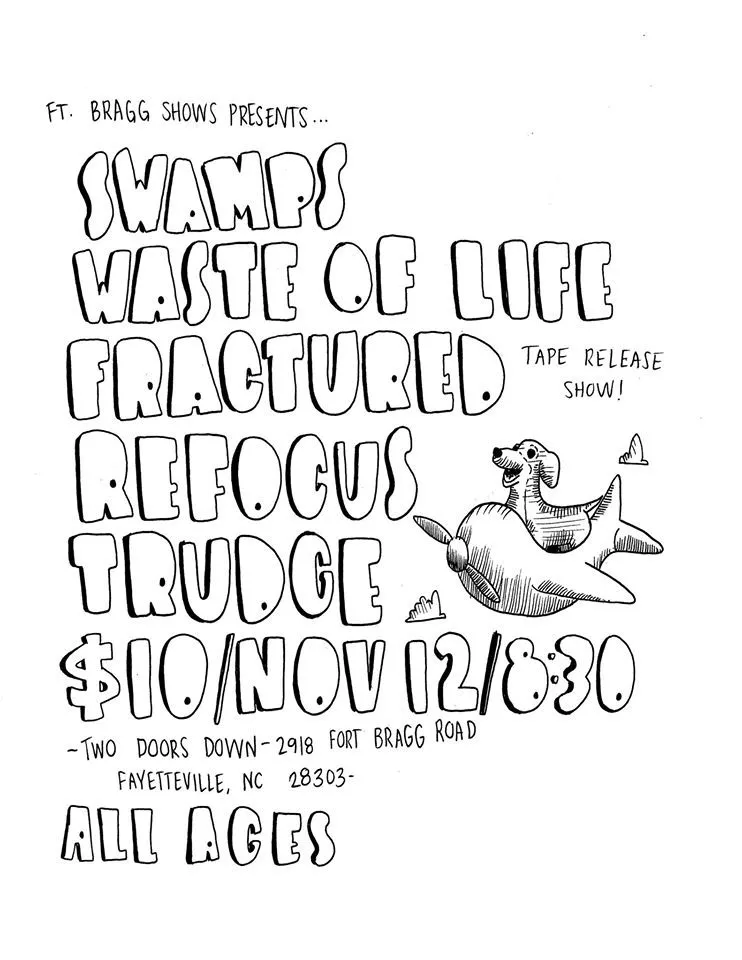 FT. BRAGG SHOWS PRESENTS...
SWAMPS
WASTE OF LIFE
FRACTURED
TAPE RELEASE
SHOW!
REFOCUS
TRUDGE
$10/NOV 12/8:30
~TWO DOORS DOWN- 2918 FORT BRAGG ROAD
FAYETTEVILLE, NC 28303-
ALL AGES